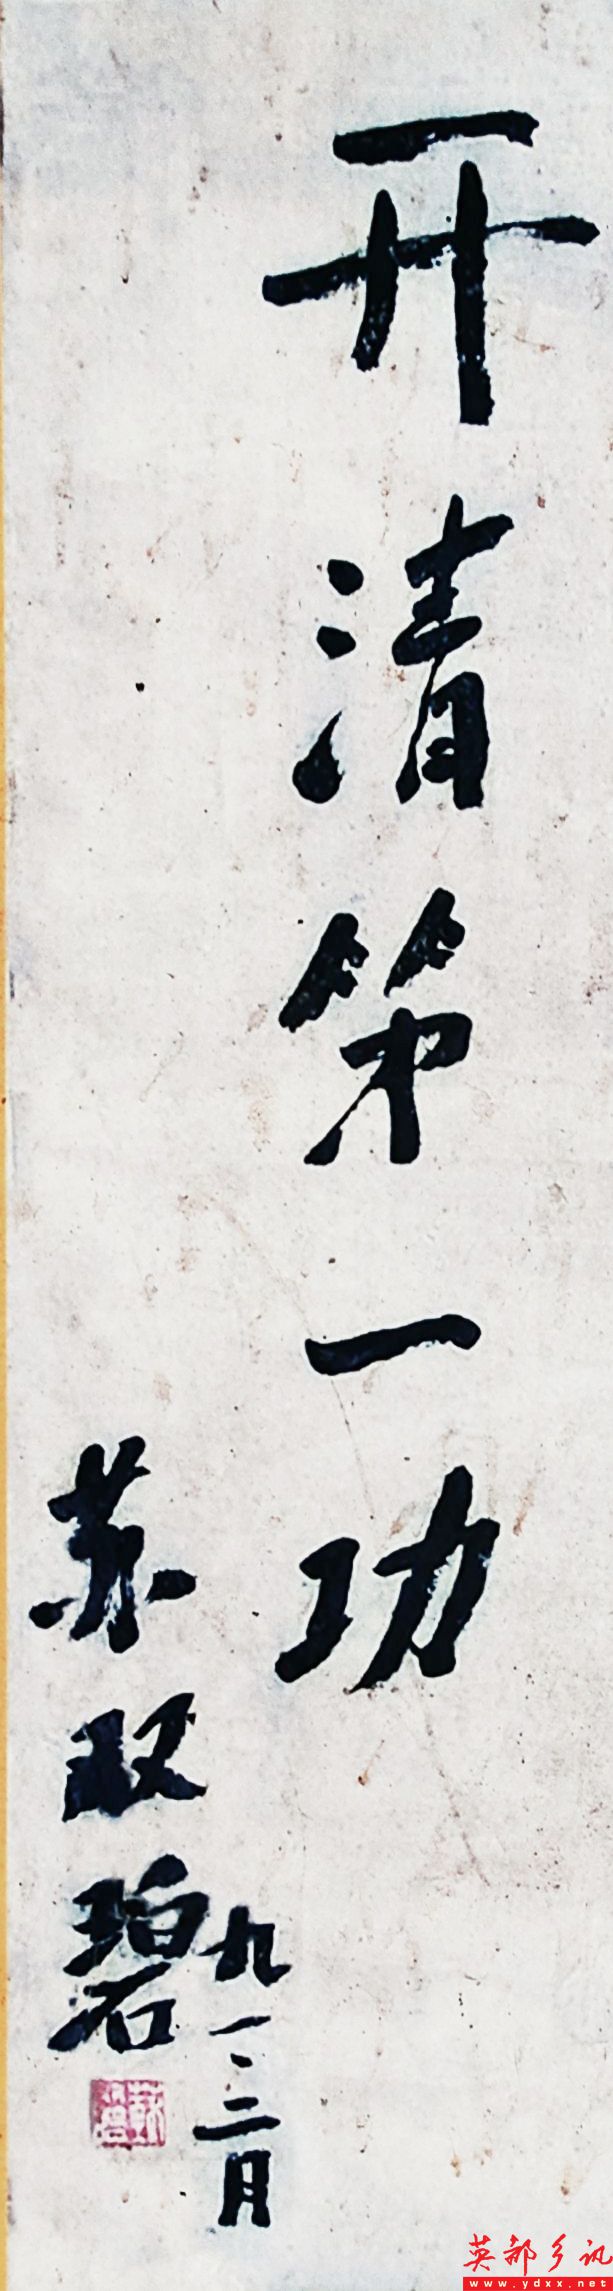 开清第一功
苏双碧
九一、二月
英都乡讯
www.ydxx.net